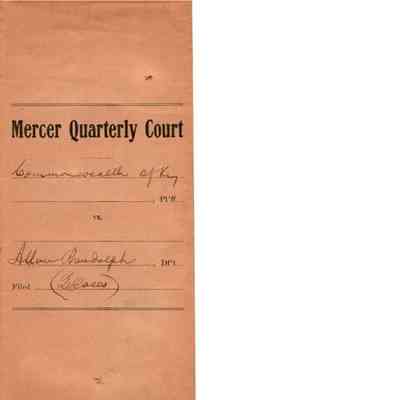 Mercer Quarterly Court
Commonwealth of Ky
Pl'ff.
vs.
Randolph, Df't.
Filed (2 Cases)